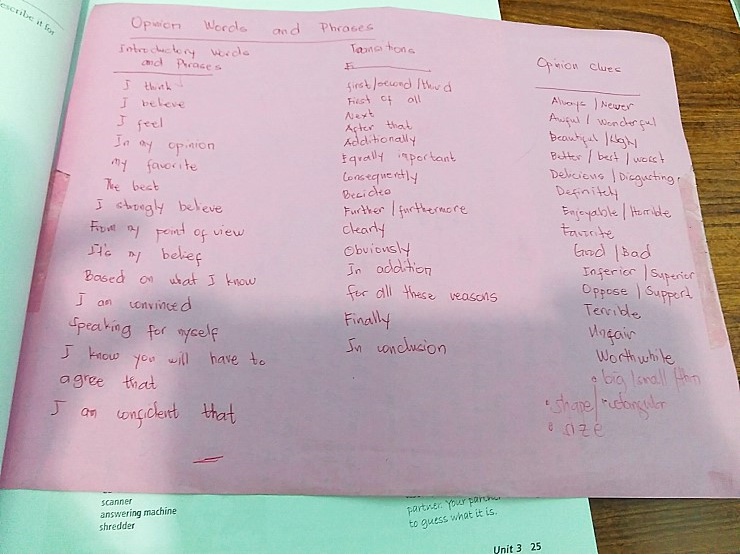 escribe it for
Opinion Words and Phrases
Introductory words
and Phrases
I think
I believe
I feel
In my opinion
my favorite
The best
I strongly believe
From my point of view
It's my belief
Based on what I know
I am convinced
Speaking for myself
I know you will have to
agree that
I am confident that
Transitions
first/second/third
First of all
Next
After that
Additionally
Equally important
Consequently
Besides
Further / furthermore
Clearly
Obviously
In addition
for all these reasons
Finally
In conclusion
Opinion clues
Always / Never
Awful / wonderful
Beautiful / Ugly
Better / best / worst
Delicious / Disgusting
Definitely
Enjoyable / Horrible
Favorite
Good / Bad
Inferior / Superior
Oppose / Support
Terrible
Unfair
Worthwhile
• big /small /thin
• shape/ rectangular
• size
scanner
answering machine
shredder
partner. Your partner
to guess what it is.
Unit 3 25